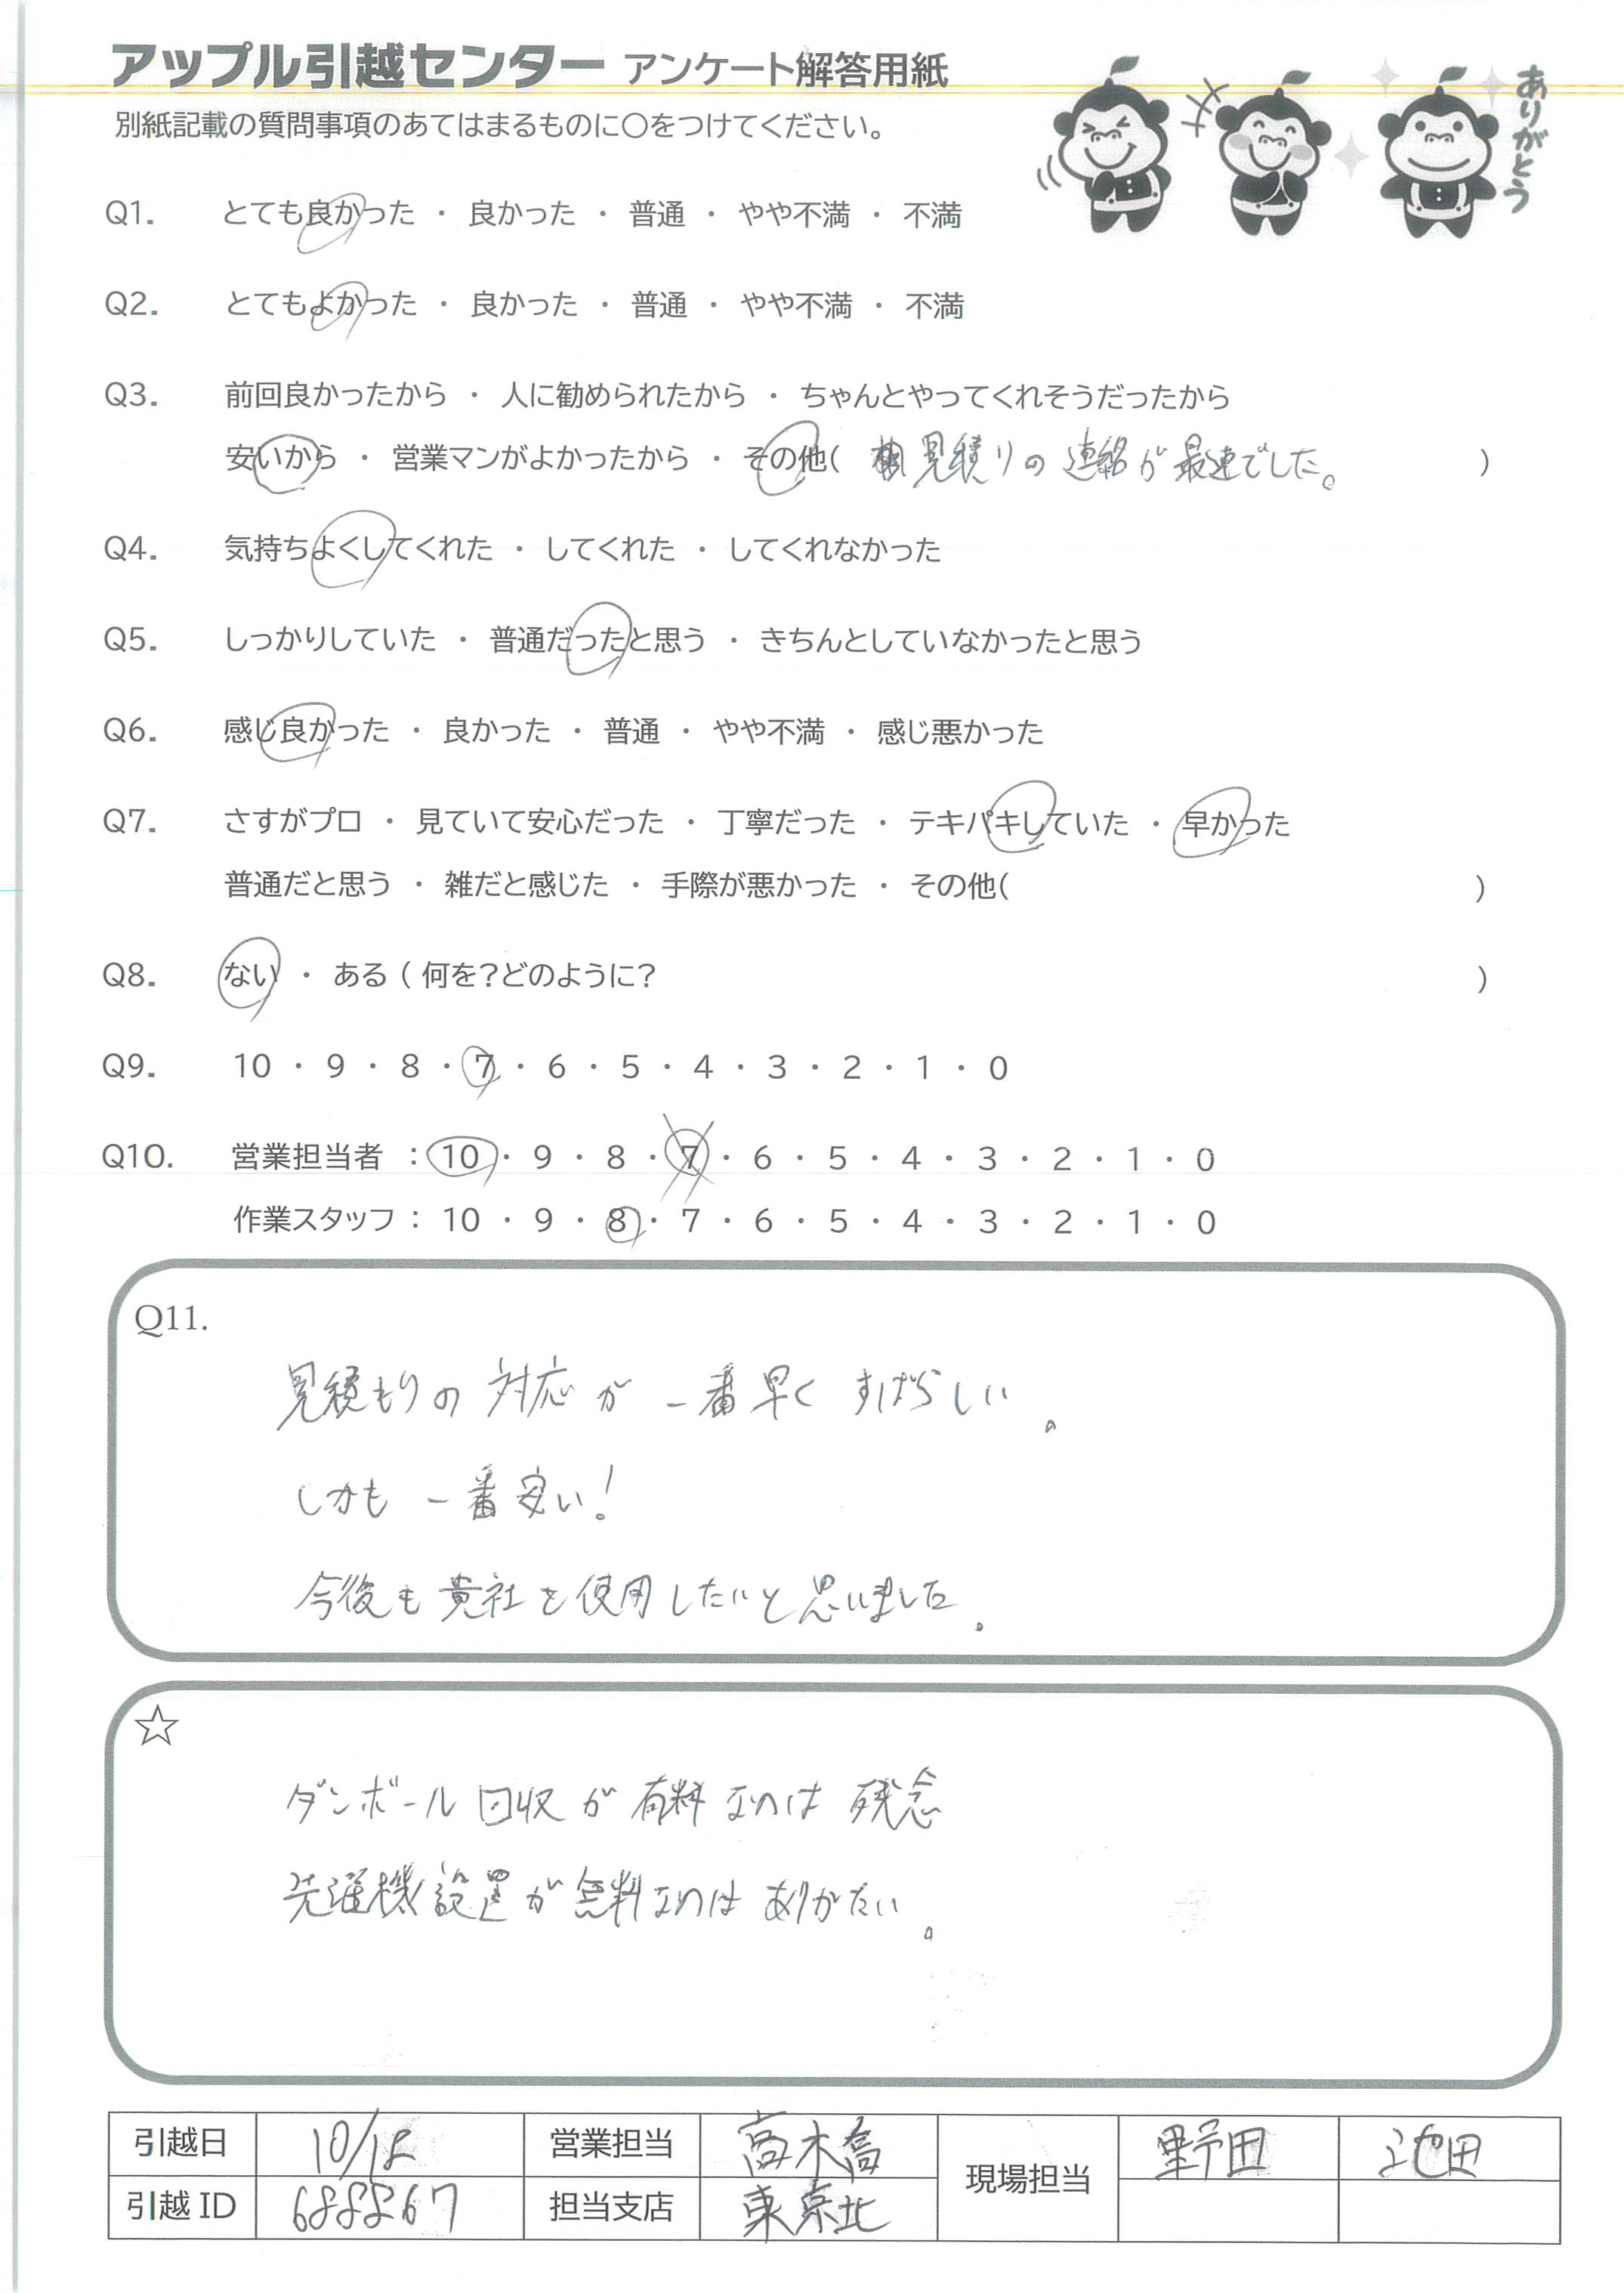 アップル引越センター アンケート解答用紙
別紙記載の質問事項のあてはまるものに〇をつけてください。
ありがとう
Q1. とても良かった ・ 良かった ・ 普通 ・ やや不満 ・ 不満
Q2. とてもよかった ・ 良かった ・ 普通 ・ やや不満 ・ 不満
Q3. 前回良かったから ・ 人に勧められたから ・ ちゃんとやってくれそうだったから
安いから ・ 営業マンがよかったから ・ その他( 見積りの連絡が最速でした。 )
Q4. 気持ちよくしてくれた ・ してくれた ・ してくれなかった
Q5. しっかりしていた ・ 普通だったと思う ・ きちんとしていなかったと思う
Q6. 感じ良かった ・ 良かった ・ 普通 ・ やや不満 ・ 感じ悪かった
Q7. さすがプロ ・ 見ていて安心だった ・ 丁寧だった ・ テキパキしていた ・ 早かった
普通だと思う ・ 雑だと感じた ・ 手際が悪かった ・ その他( )
Q8. ない ・ ある ( 何を?どのように? )
Q9. 10 ・ 9 ・ 8 ・ 7 ・ 6 ・ 5 ・ 4 ・ 3 ・ 2 ・ 1 ・ 0
Q10. 営業担当者 : 10 ・ 9 ・ 8 ・ 7 ・ 6 ・ 5 ・ 4 ・ 3 ・ 2 ・ 1 ・ 0
作業スタッフ : 10 ・ 9 ・ 8 ・ 7 ・ 6 ・ 5 ・ 4 ・ 3 ・ 2 ・ 1 ・ 0
Q11.
見積もりの対応が一番早くすばらしい。
しかも一番安い!。
今後も貴社を使用したいと思いました。
☆
ダンボール回収が有料なのは残念
洗濯機設置が無料なのはありがたい。
引越日 営業担当 高木喬 現場担当 野田 池田
引越ID 688867 担当支店 東京北